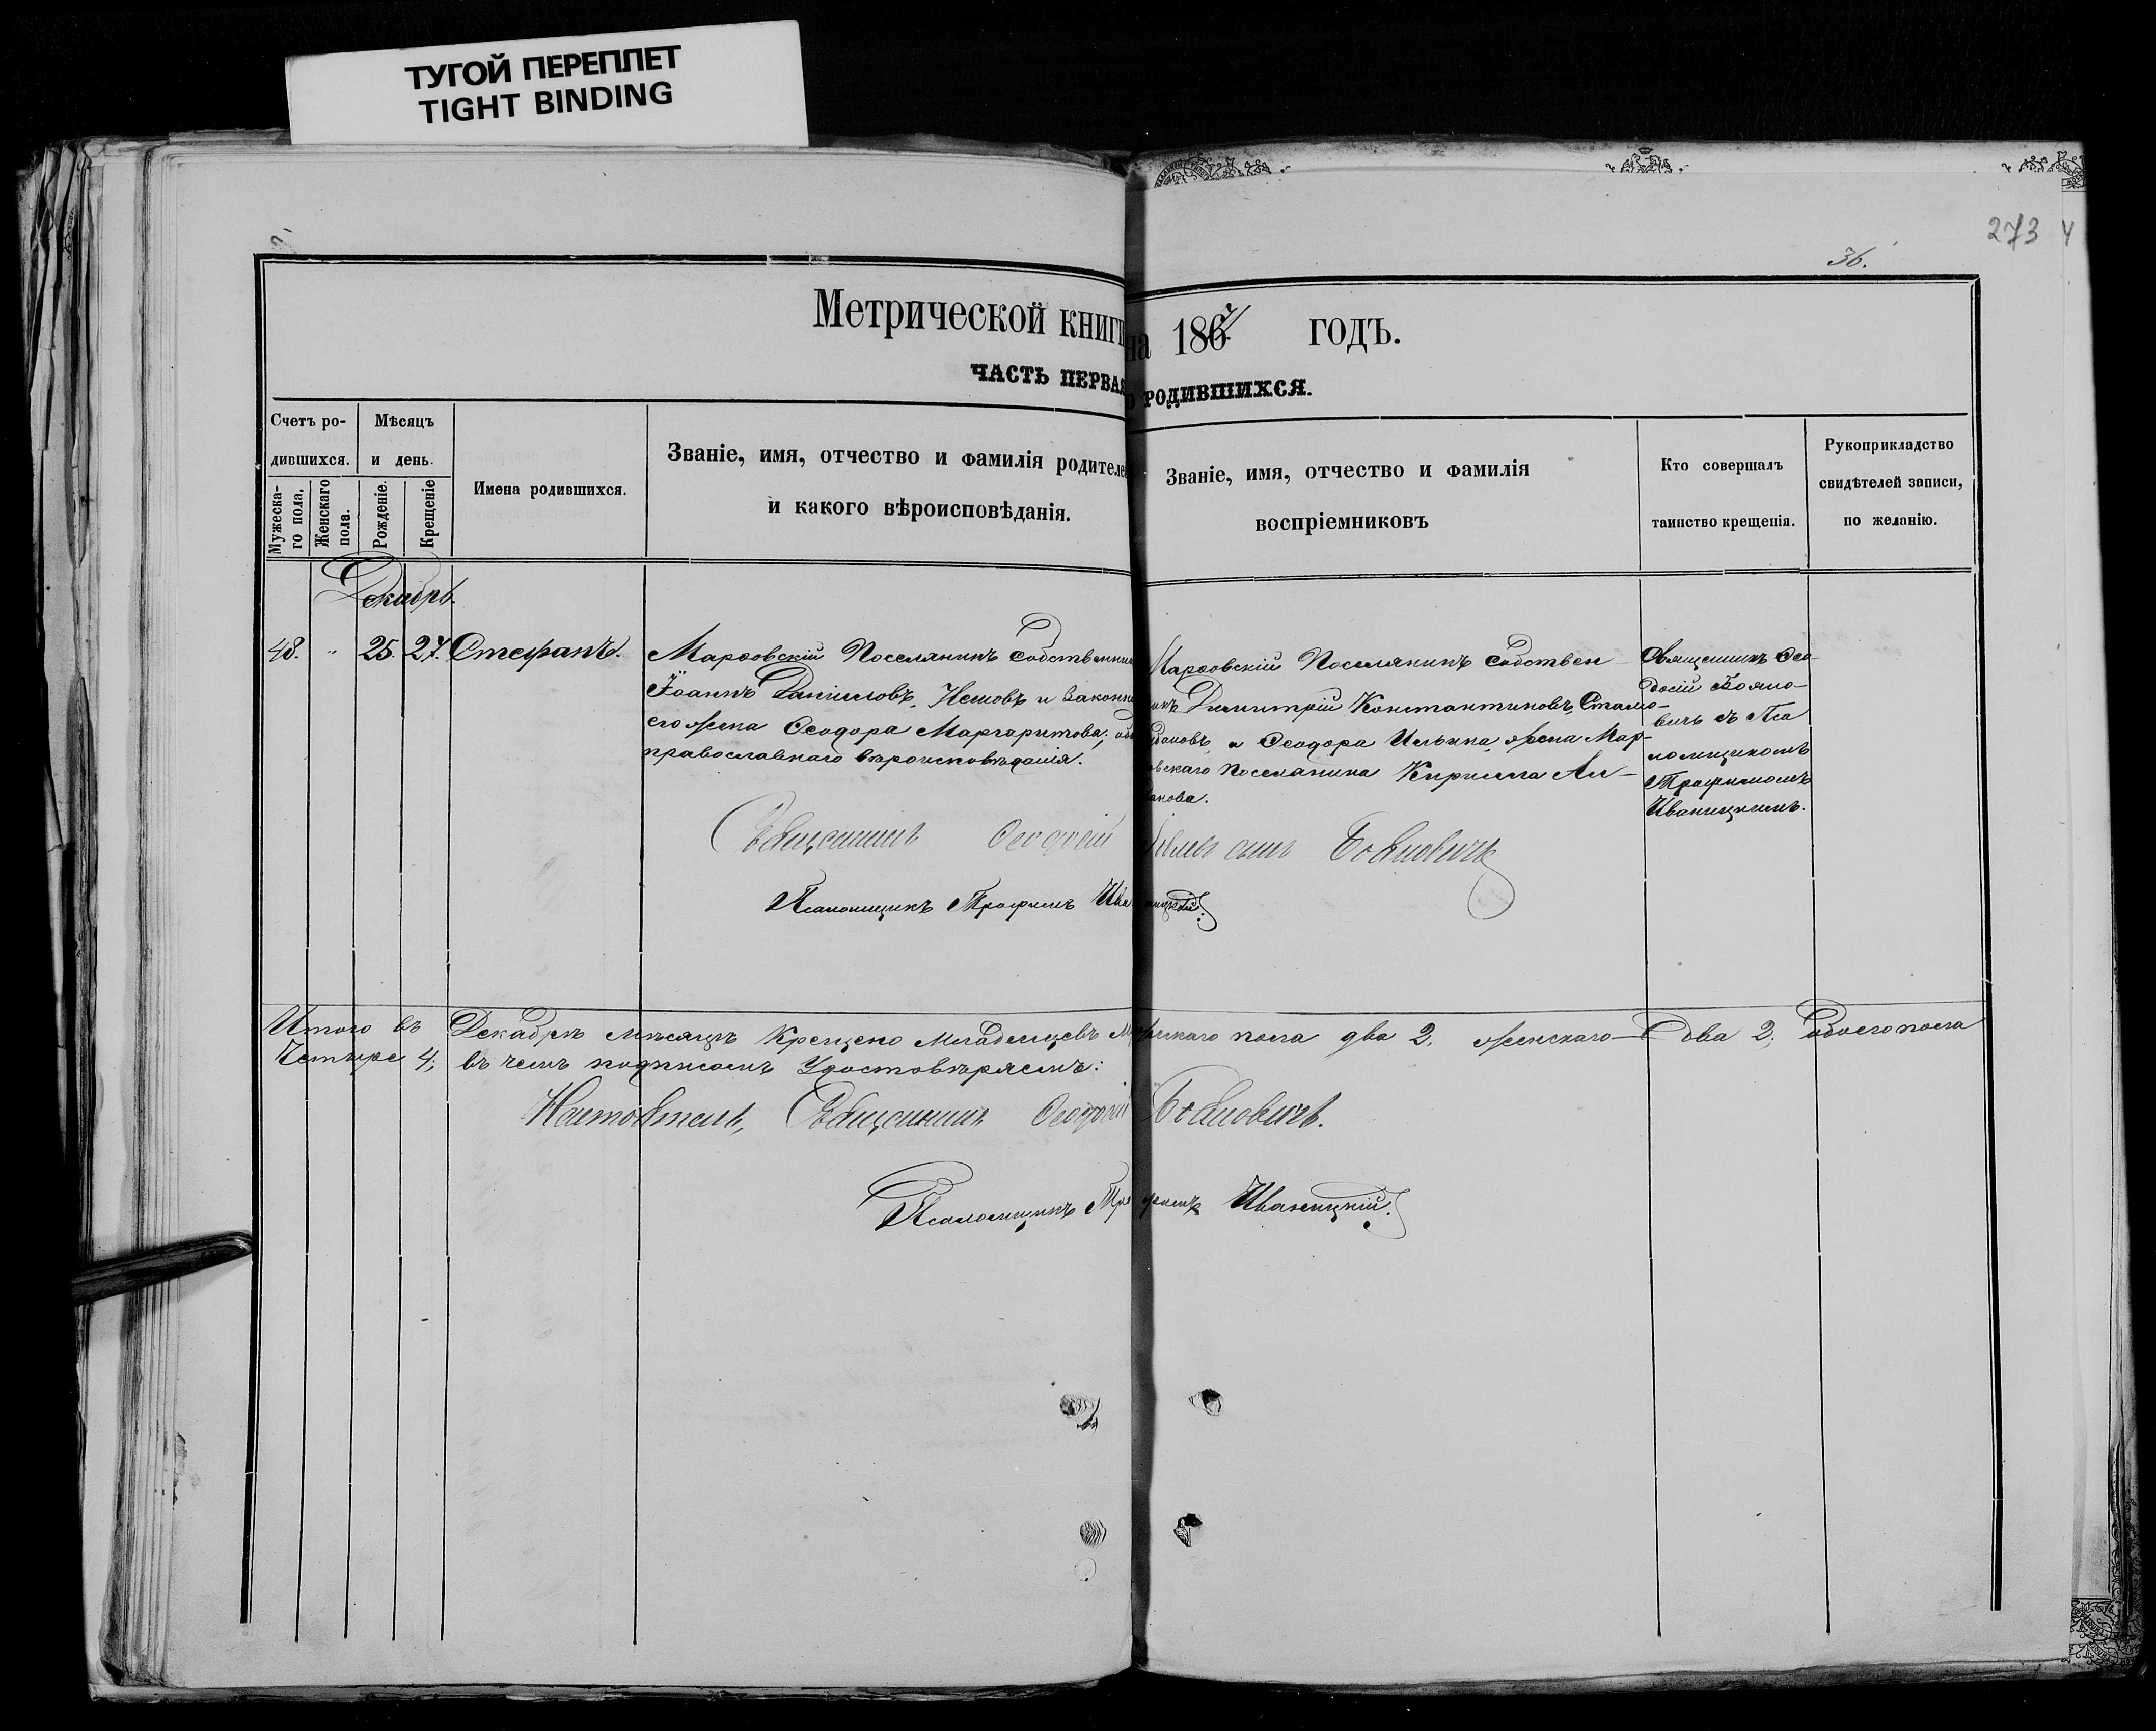 ТУГОЙ ПЕРЕПЛЕТ
TIGHT BINDING
273
36.
Метрической книги на 1867 годъ.
ЧАСТЬ ПЕРВАЯ О РОДИВШИХСЯ.
Счетъ родившихся.
Мужескаго пола.
Женскаго пола.
Мѣсяцъ и день.
Рожденіе.
Крещеніе
Имена родившихся.
Званіе, имя, отчество и фамилія родителе
и какого вѣроисповѣданія.
Званіе, имя, отчество и фамилія
воспріемниковъ
Кто совершалъ
таинство крещенія.
Рукоприкладство
свидѣтелей записи,
по желанію.
Декабрь.
48. " 25. 27. Стефанъ.
Марѳовскій Поселянинъ Собственни
Іоаннъ Даніиловъ, Нешовъ и законна
его жена Ѳеодора Маргаритова; об
православнаго вѣроисповѣданія.
Марѳовскій Поселянинъ Собствен-
икъ Димитрій Константиновъ,
и Ѳеодора Ильина, жена Мар-
овскаго поселянина Кирилла Ал-
Священникъ Ѳео-
досій Бояно-
вичъ съ Пса
ломщикомъ
Трофимомъ
Иваницкимъ.
Священникъ Ѳеодосій сынъ Бояновичъ
Псаломщикъ Трофимъ Иваницкій.
Итого въ Декабрѣ мѣсяцѣ Крещено Младенцевъ Мужескаго пола два 2, женскаго два 2, обоего пола
Четыре 4, въ чемъ подписомъ Удостовѣряемъ:
Настоятель, Священникъ Ѳеодосій Бояновичъ.
Псаломщикъ Трофимъ Иваницкій.